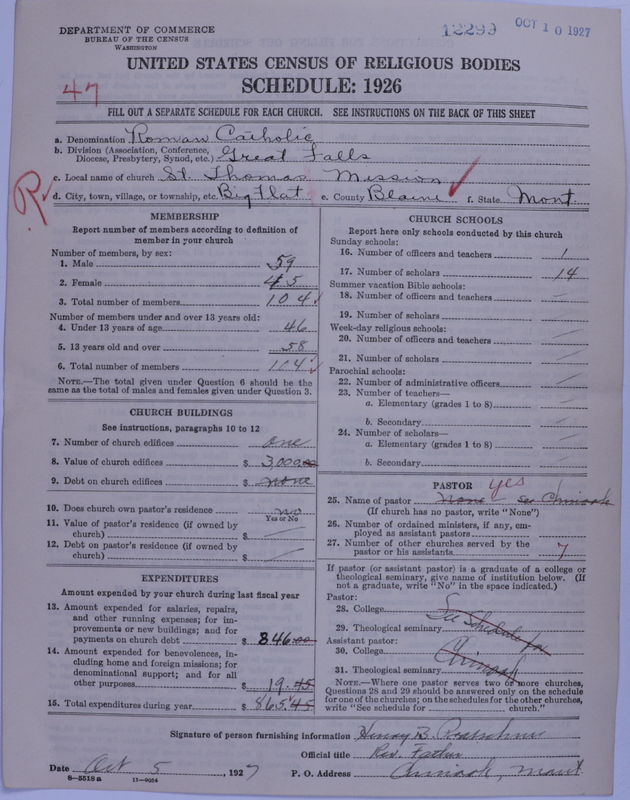 DEPARTMENT OF COMMERCE
BUREAU OF THE CENSUS
WASHINGTON
12299 OCT 10 1927
UNITED STATES CENSUS OF RELIGIOUS BODIES
SCHEDULE: 1926
47
FILL OUT A SEPARATE SCHEDULE FOR EACH CHURCH. SEE INSTRUCTIONS ON THE BACK OF THIS SHEET
a. Denomination Roman Catholic
b. Division (Association, Conference, Diocese, Presbytery, Synod, etc.) Great Falls
c. Local name of church St. Thomas Mission
R
d. City, town, village, or township, etc. Big Flat e. County Blaine f. State Mont
MEMBERSHIP
Report number of members according to definition of member in your church
Number of members, by sex:
1. Male 59
2. Female 45
3. Total number of members 104
Number of members under and over 13 years old:
4. Under 13 years of age 46
5. 13 years old and over 58
6. Total number of members 104
NOTE.—The total given under Question 6 should be the same as the total of males and females given under Question 3.
CHURCH BUILDINGS
See instructions, paragraphs 10 to 12
7. Number of church edifices one
8. Value of church edifices $ 3,000.00
9. Debt on church edifices $ none
10. Does church own pastor's residence no
Yes or No
11. Value of pastor's residence (if owned by church) $
12. Debt on pastor's residence (if owned by church) $
EXPENDITURES
Amount expended by your church during last fiscal year
13. Amount expended for salaries, repairs, and other running expenses; for improvements or new buildings; and for payments on church debt $ 846.00
14. Amount expended for benevolences, including home and foreign missions; for denominational support; and for all other purposes $ 19.45
15. Total expenditures during year $ 865.45
CHURCH SCHOOLS
Report here only schools conducted by this church
Sunday schools:
16. Number of officers and teachers 1
17. Number of scholars 14
Summer vacation Bible schools:
18. Number of officers and teachers
19. Number of scholars
Week-day religious schools:
20. Number of officers and teachers
21. Number of scholars
Parochial schools:
22. Number of administrative officers
23. Number of teachers—
a. Elementary (grades 1 to 8)
b. Secondary
24. Number of scholars—
a. Elementary (grades 1 to 8)
b. Secondary
PASTOR yes
25. Name of pastor None see Chinook
(If church has no pastor, write "None")
26. Number of ordained ministers, if any, employed as assistant pastors
27. Number of other churches served by the pastor or his assistants 7
If pastor (or assistant pastor) is a graduate of a college or theological seminary, give name of institution below. (If not a graduate, write "No" in the space indicated.)
Pastor:
28. College
29. Theological seminary See Schedule for
Assistant pastor:
30. College Chinook
31. Theological seminary
NOTE.—Where one pastor serves two or more churches, Questions 28 and 29 should be answered only on the schedule for one of the churches; on the schedules for the other churches, write "See schedule for church."
Signature of person furnishing information Henry B.
Official title Rev. Father
Date Oct 5, 1927 P. O. Address Chinook, Mont
8-5518a 11-9034